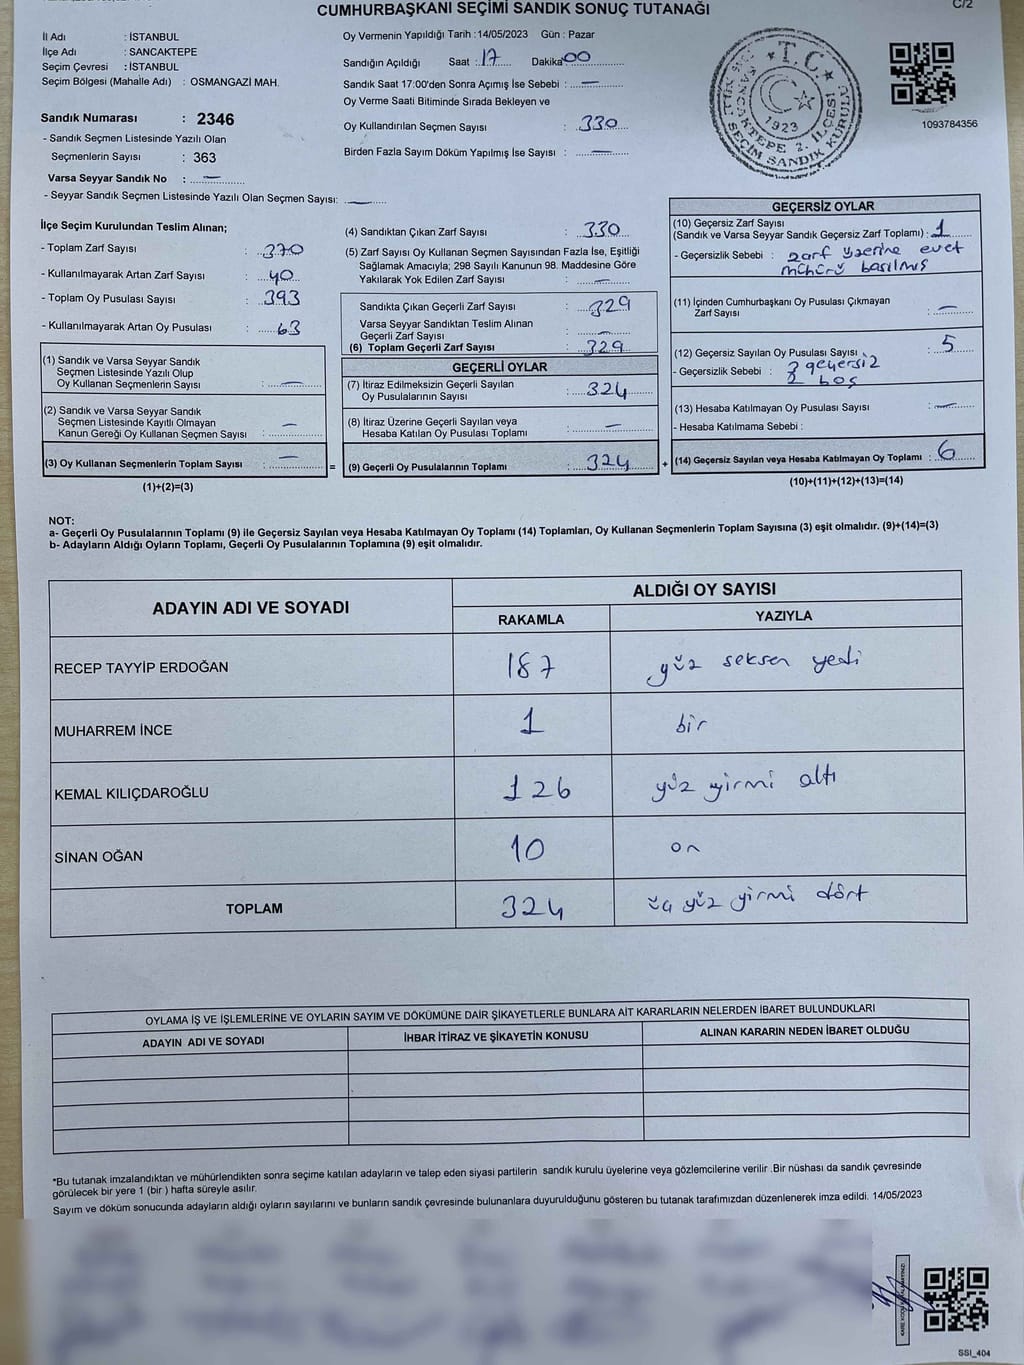 CUMHURBAŞKANI SEÇİMİ SANDIK SONUÇ TUTANAĞI
C/2
İl Adı : İSTANBUL
İlçe Adı : SANCAKTEPE
Seçim Çevresi : İSTANBUL
Seçim Bölgesi (Mahalle Adı) : OSMANGAZİ MAH.
Sandık Numarası : 2346
- Sandık Seçmen Listesinde Yazılı Olan
Seçmenlerin Sayısı : 363
Varsa Seyyar Sandık No : —
- Seyyar Sandık Seçmen Listesinde Yazılı Olan Seçmen Sayısı: —
Oy Vermenin Yapıldığı Tarih : 14/05/2023 Gün : Pazar
Sandığın Açıldığı Saat : 17 Dakika 00
Sandık Saat 17:00'den Sonra Açımış İse Sebebi : —
Oy Verme Saati Bitiminde Sırada Bekleyen ve
Oy Kullandırılan Seçmen Sayısı : 330
Birden Fazla Sayım Döküm Yapılmış İse Sayısı : —
T.C.
SANCAKTEPE 2. İLÇESİ
SEÇİM SANDIK KURULU
1923
1093784356
İlçe Seçim Kurulundan Teslim Alınan;
- Toplam Zarf Sayısı : 370
- Kullanılmayarak Artan Zarf Sayısı : 40
- Toplam Oy Pusulası Sayısı : 393
- Kullanılmayarak Artan Oy Pusulası : 63
(1) Sandık ve Varsa Seyyar Sandık
Seçmen Listesinde Yazılı Olup
Oy Kullanan Seçmenlerin Sayısı : —
(2) Sandık ve Varsa Seyyar Sandık
Seçmen Listesinde Kayıtlı Olmayan
Kanun Gereği Oy Kullanan Seçmen Sayısı : —
(3) Oy Kullanan Seçmenlerin Toplam Sayısı : —
(1)+(2)=(3)
=
(4) Sandıktan Çıkan Zarf Sayısı : 330
(5) Zarf Sayısı Oy Kullanan Seçmen Sayısından Fazla İse, Eşitliği
Sağlamak Amacıyla; 298 Sayılı Kanunun 98. Maddesine Göre
Yakılarak Yok Edilen Zarf Sayısı : —
Sandıkta Çıkan Geçerli Zarf Sayısı : 329
Varsa Seyyar Sandıktan Teslim Alınan
Geçerli Zarf Sayısı : —
(6) Toplam Geçerli Zarf Sayısı : 329
GEÇERLİ OYLAR
(7) İtiraz Edilmeksizin Geçerli Sayılan
Oy Pusulalarının Sayısı : 324
(8) İtiraz Üzerine Geçerli Sayılan veya
Hesaba Katılan Oy Pusulası Toplamı : —
(9) Geçerli Oy Pusulalarının Toplamı : 324
+
GEÇERSİZ OYLAR
(10) Geçersiz Zarf Sayısı
(Sandık ve Varsa Seyyar Sandık Geçersiz Zarf Toplamı) : 1
- Geçersizlik Sebebi : zarf üzerine evet
mührü basılmış
(11) İçinden Cumhurbaşkanı Oy Pusulası Çıkmayan
Zarf Sayısı : —
(12) Geçersiz Sayılan Oy Pusulası Sayısı : 5
- Geçersizlik Sebebi : 3 geçersiz
2 boş
(13) Hesaba Katılmayan Oy Pusulası Sayısı : —
- Hesaba Katılmama Sebebi :
(14) Geçersiz Sayılan veya Hesaba Katılmayan Oy Toplamı : 6
(10)+(11)+(12)+(13)=(14)
NOT:
a- Geçerli Oy Pusulalarının Toplamı (9) ile Geçersiz Sayılan veya Hesaba Katılmayan Oy Toplamı (14) Toplamları, Oy Kullanan Seçmenlerin Toplam Sayısına (3) eşit olmalıdır. (9)+(14)=(3)
b- Adayların Aldığı Oyların Toplamı, Geçerli Oy Pusulalarının Toplamına (9) eşit olmalıdır.
ADAYIN ADI VE SOYADI
ALDIĞI OY SAYISI
RAKAMLA YAZIYLA
RECEP TAYYİP ERDOĞAN 187 yüz seksen yedi
MUHARREM İNCE 1 bir
KEMAL KILIÇDAROĞLU 126 yüz yirmi altı
SİNAN OĞAN 10 on
TOPLAM 324 üç yüz yirmi dört
OYLAMA İŞ VE İŞLEMLERİNE VE OYLARIN SAYIM VE DÖKÜMÜNE DAİR ŞİKAYETLERLE BUNLARA AİT KARARLARIN NELERDEN İBARET BULUNDUKLARI
ADAYIN ADI VE SOYADI İHBAR İTİRAZ VE ŞİKAYETİN KONUSU ALINAN KARARIN NEDEN İBARET OLDUĞU
*Bu tutanak imzalandıktan ve mühürlendikten sonra seçime katılan adayların ve talep eden siyasi partilerin sandık kurulu üyelerine veya gözlemcilerine verilir .Bir nüshası da sandık çevresinde
görülecek bir yere 1 (bir ) hafta süreyle asılır.
Sayım ve döküm sonucunda adayların aldığı oyların sayılarını ve bunların sandık çevresinde bulunanlara duyurulduğunu gösteren bu tutanak tarafımızdan düzenlenerek imza edildi. 14/05/2023
SSI_404